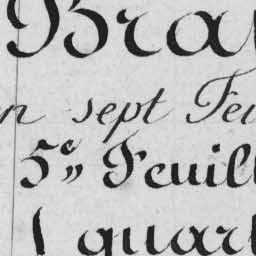 Bra
n sept Feu
5e,, Feuill
1 quart